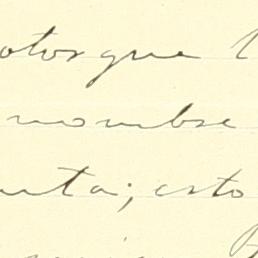 otorgue l
nombre
uta; esto